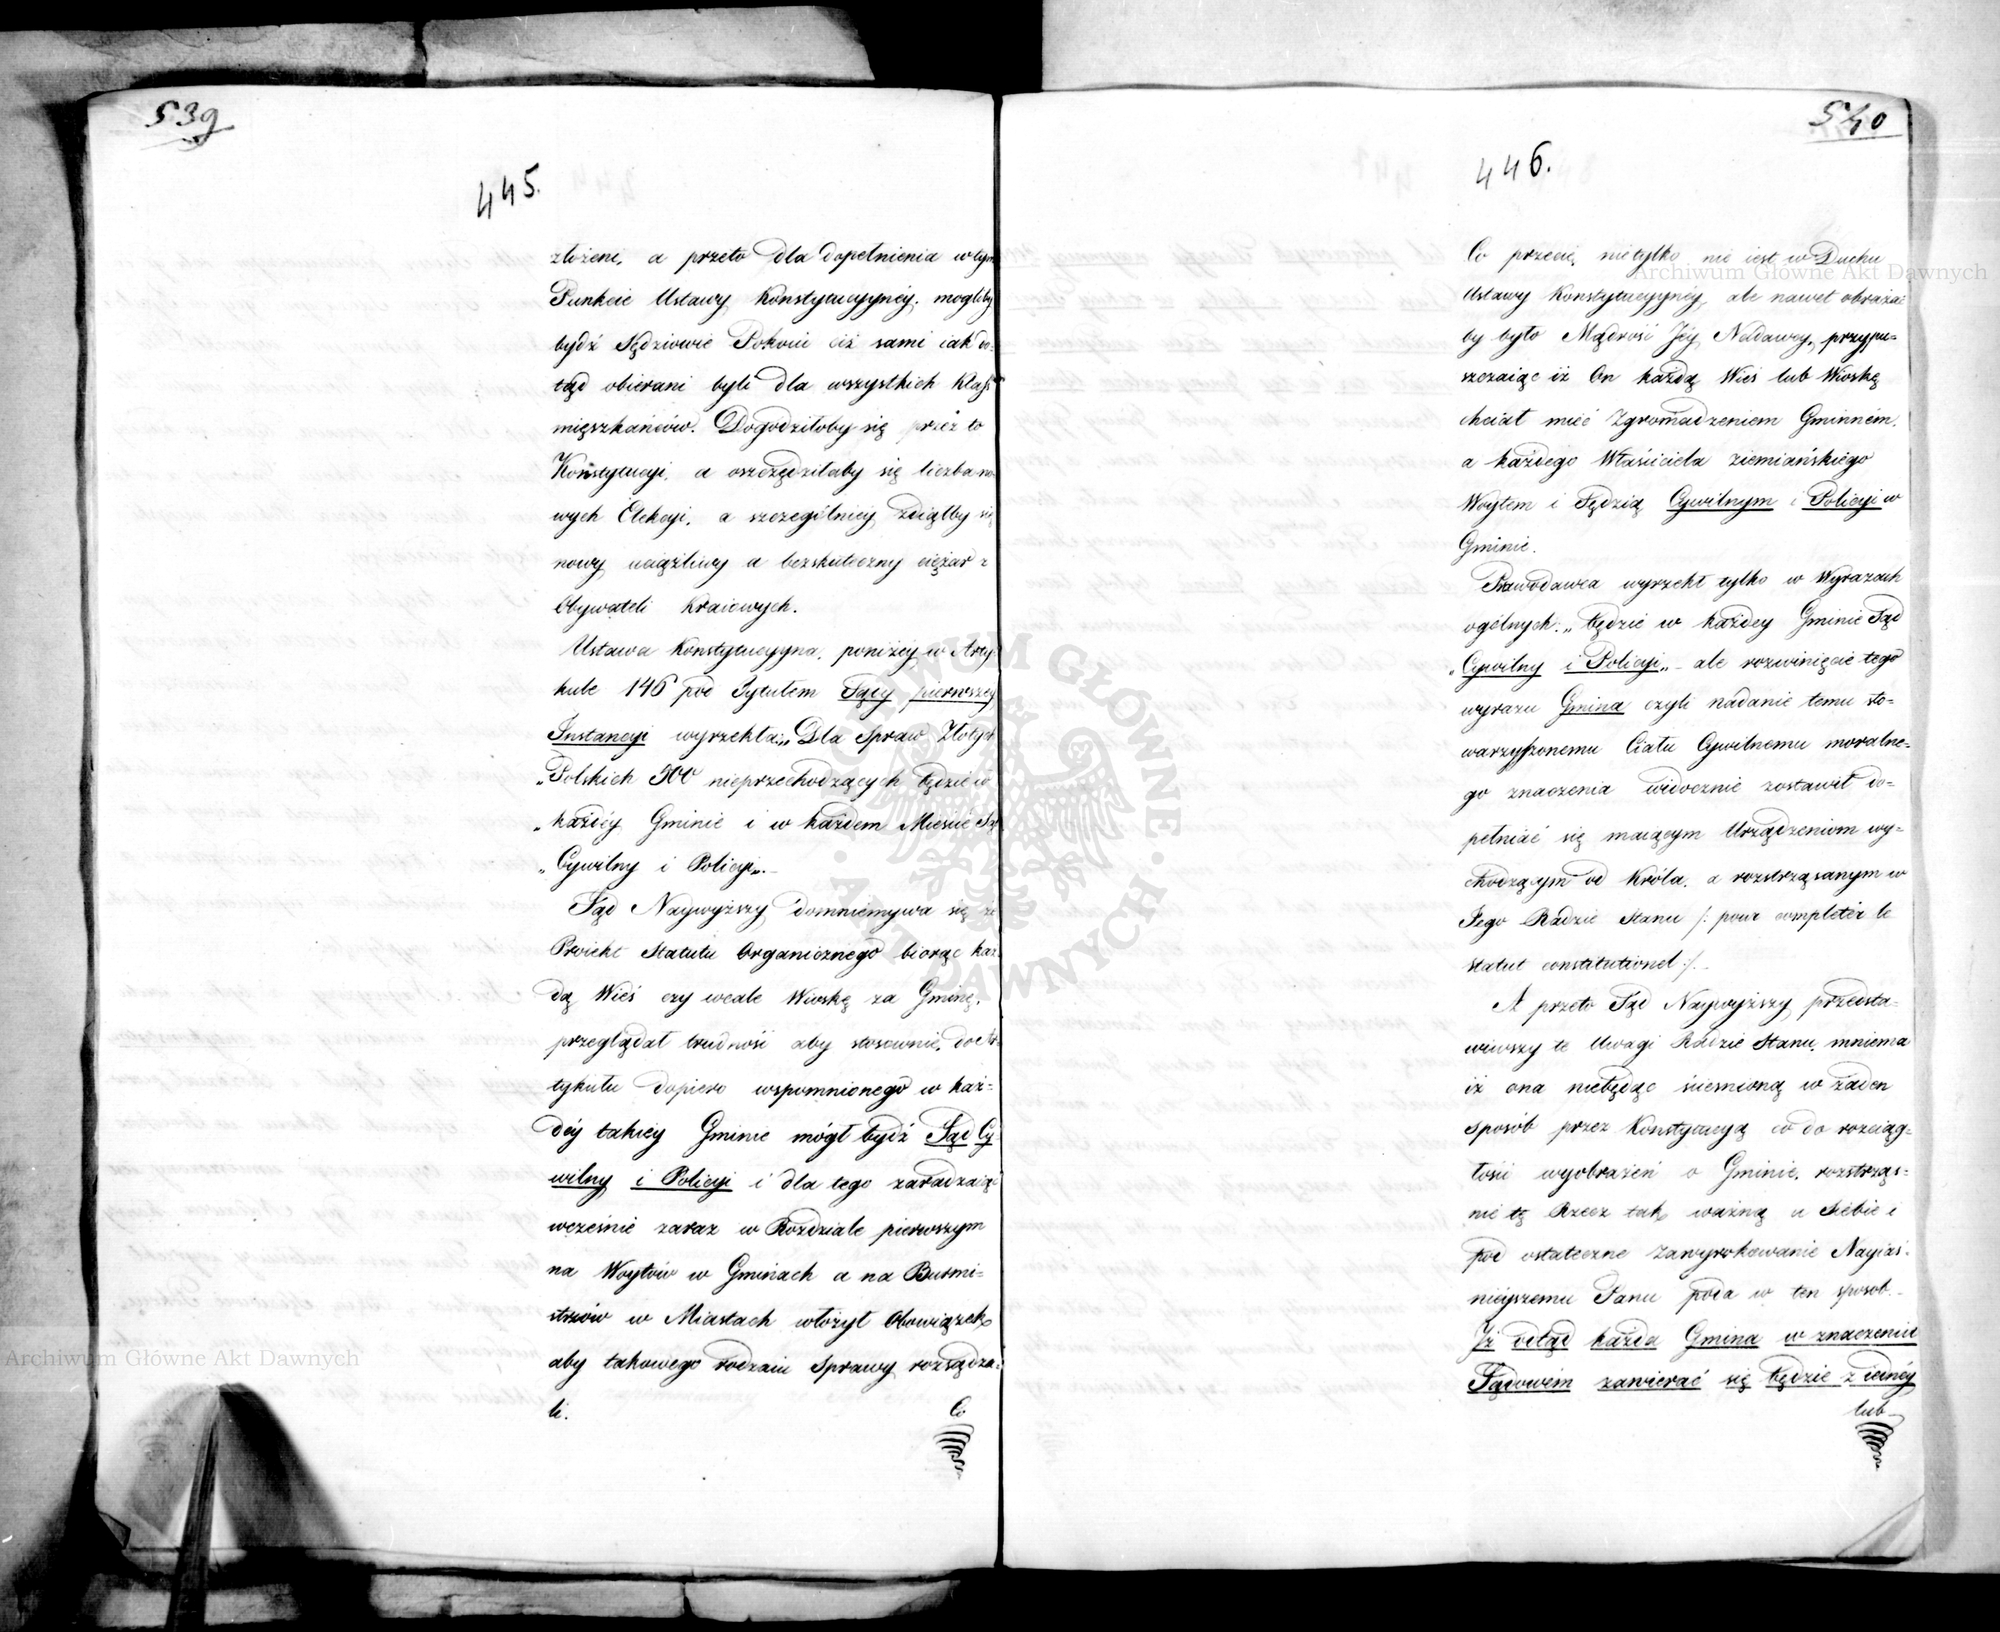 539
445.
złożeni, a przeto dla dopełnienia w tym
Punkcie Ustawy Konstytucyynéy, mogliby
bydź Sędziowie Pokoiu ciż sami iak do-
tąd obierani byli dla wszystkich Klass
mięszkańców. Dogodziłoby się przez to
Konstytucyi, a oszczędziłaby się liczba no
wych Elekcyi, a szczególniéy zdiąłby się
nowy uciążliwy a bezskuteczny ciężar z
Obywateli Kraiowych.
Ustawa Konstytucyyna, poniżey w Arty
kule 146 pod Tytułem Sądy pierwszey
Instancyi wyrzekła: „Dla Spraw Złotych
„Polskich 500 nieprzechodzących będzie w
„każdéy Gminie i w każdem Mieście Sąd
„Cywilny i Policyi„.
Sąd Naywyższy domniemywa się że
Proiekt Statutu Organicznego biorąc każ
dą Wieś czy wcale Wioskę za Gminę,
przeglądał trudność aby stosownie, do Ar
tykułu dopiero wspomnionego w każ-
déy takiéy Gminie mógł bydź Sąd Cy-
wilny i Policyi i dla tego zaradzaiąc
wcześnie zaraz w Rozdziale pierwszym
na Woytów w Gminach a na Burmi-
strzów w Miastach włożył Obowiązek,
aby takowego rodzaiu Sprawy rozsądza-
li.
Co
540
446.
Co przecie, nietylko nie iest w Duchu
Ustawy Konstytucyynéy, ale nawet obrażać
by było Mądrość Jéy Nadawcy, przypu-
szczaiąc iż On każdą Wieś lub Wioskę
chciał mieć Zgromadzeniem Gminném,
a każdego Właściciela ziemiańskiego
Woytem i Sędzią Cywilnym i Policyi w
Gminie.
Prawodawca wyrzekł tylko w Wyrazach
ogólnych: „będzie w każdey Gminie Sąd
„Cywilny i Policyi„ – ale rozwinięcie tego
wyrazu Gmina czyli nadanie temu sto-
warzyszonemu Ciału Cywilnemu moralne-
go znaczenia widocznie zostawił do-
pełniać się maiącym Urządzeniom wy-
chodzącym od Króla, a rozstrząsanym w
Jego Radzie Stanu /: pour completer le
statut constitutionel :/. –
A przeto Sąd Naywyższy przedsta-
wiwszy te Uwagi Radzie Stanu, mniema
iż ona niebędąc ścieśnioną w żaden
sposób przez Konstytucyą co do rozciąg-
łości wyobrażeń o Gminie, rozstrząs-
nie tę Rzecz tak ważną u Siebie i
pod ostateczne Zawyrokowanie Nayiaś-
nieyszemu Panu poda w ten sposob. –
Iż odtąd każda Gmina w znaczeniu
Sądowém zawierać się będzie z iednéy
lub
Archiwum Główne Akt Dawnych
Archiwum Główne Akt Dawnych
ARCHIWUM GŁÓWNE
AKT DAWNYCH